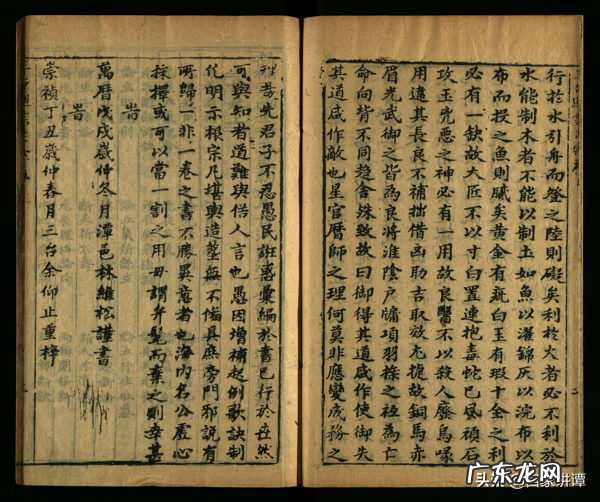 行於水引舟而登之陸則礙矣利於大者必不利於
水能制木者不能以制玉如魚以濯錦灰以浣布以
布而投之魚則膩矣黃金有疵白玉有瑕十全之利
必有一缺故大匠不以寸白置連抱毒蛇巳風頑石
攻玉兇惡之神必有一用故良醫不以殺人廢烏喙
用違其長良不補拙借凶助吉取效尤捷故銅馬亦
眉光武御之皆為良將淮陰戶牖項羽之秪為亡
命向背不同趨舍殊致故曰御得其道咸作使御失
其道咸作敵也星官曆師之理何莫非應變成務之
理哉先君子不忍愚民誑惑彙編於書已行於世然
可與知者道難與俗人言也愚因增補起例歌訣制
化明示根宗凡堪輿造塟無不備具庶旁門邪說有
所歸一非一卷之書不勝異意者也海內名公虛心
採擇或可以當一割之用毋謂弁髦而棄之則幸甚
旹
萬曆戊戌歲仲冬月潭邑林維松謹書
旹
崇禎丁丑歲仲春月三台余仰止重梓
广东龙网